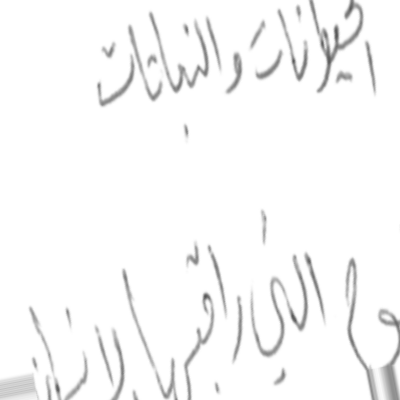 الحيوانات والنباتات
وم التي راقبها الانسان